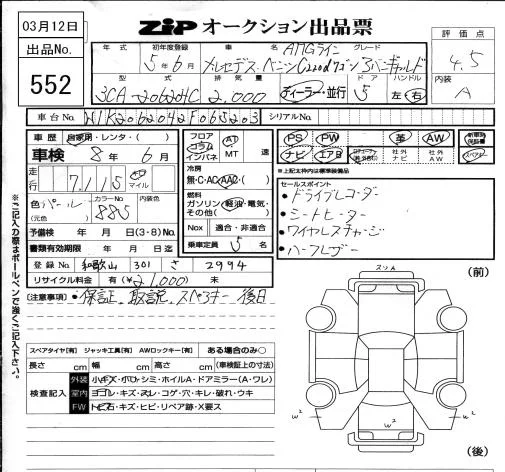 03月12日
出品No.
552
ZIP オークション出品票
評価点
4.5
内装
A
年式 初年度登録 車名 グレード
AMGライン
5年6月 メルセデス・ベンツ C220dワゴン アバンギャルド
型式 排気量 ドア ハンドル
3CA-206204C 2,000 ディーラー・並行 5 左・右
車台No. W1K2062042F065203 シリアルNo.
車歴 自家用・レンタ・( )
車検 8年 6月
走行 7,115 km マイル
色 パール カラーNo. 885 内装色
(元色)
予備検 年 月 日(3・8)No.
書類有効期限 年 月 日迄
登録No. 和歌山 301 さ 2994
リサイクル料金 有(¥21,000) 未
フロア コラム インパネ AT MT 速
冷房 無・C・AC・AAC・( )
燃料 ガソリン・軽油・電気・その他( )
Nox 適合・非適合
乗車定員 5 名
PS PW 革 AW 新車時保証書
ナビ エアB 社外ナビ 社外AW スペアキー
※上記太枠内は標準装備品
セールスポイント
・ドライブレコーダー
・シートヒーター
・ワイヤレスチャージ
・ハーフレザー
(注意事項) ・保証、取説、スペアキー 後日
※ご記入の際はボールペンで強くご記入下さい。
スペアタイヤ[有] ジャッキ工具[有] AWロックキー[有] ある場合のみ○
長さ cm 幅 cm 高さ cm (車検証上の寸法)
検査記入
外装 小キズ・ボコ・シミ・ホイルA・ドアミラー(A・ワレ)
室内 ヨゴレ・キズ・スレ・コゲ・穴・キレ・破れ・ウキ
FW トビ石・キズ・ヒビ・リペア跡・X要ス
スリA
(前)
W² W² W²
(後)